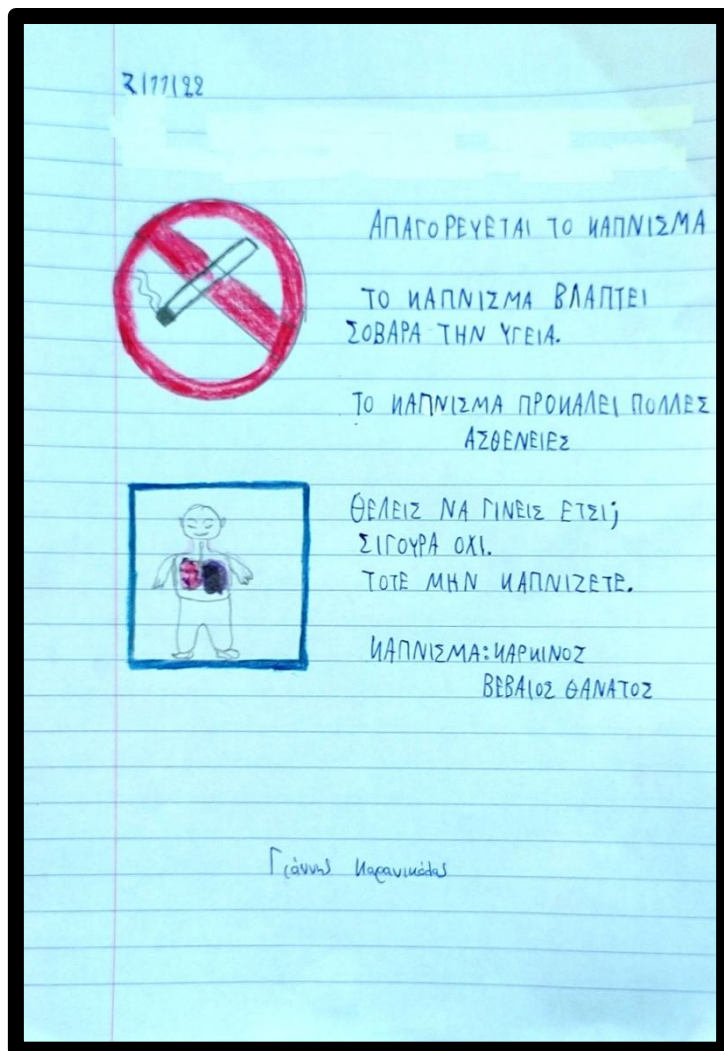 2/11/22
ΑΠΑΓΟΡΕΥΕΤΑΙ ΤΟ ΚΑΠΝΙΣΜΑ
ΤΟ ΚΑΠΝΙΣΜΑ ΒΛΑΠΤΕΙ
ΣΟΒΑΡΑ ΤΗΝ ΥΓΕΙΑ.
ΤΟ ΚΑΠΝΙΣΜΑ ΠΡΟΚΑΛΕΙ ΠΟΛΛΕΣ
ΑΣΘΕΝΕΙΕΣ
ΘΕΛΕΙΣ ΝΑ ΓΙΝΕΙΣ ΕΤΣΙ;
ΣΙΓΟΥΡΑ ΟΧΙ.
ΤΟΤΕ ΜΗΝ ΚΑΠΝΙΖΕΤΕ.
ΚΑΠΝΙΣΜΑ:ΚΑΡΚΙΝΟΣ
ΒΕΒΑΙΟΣ ΘΑΝΑΤΟΣ
Γιάννης Καρανικόλας